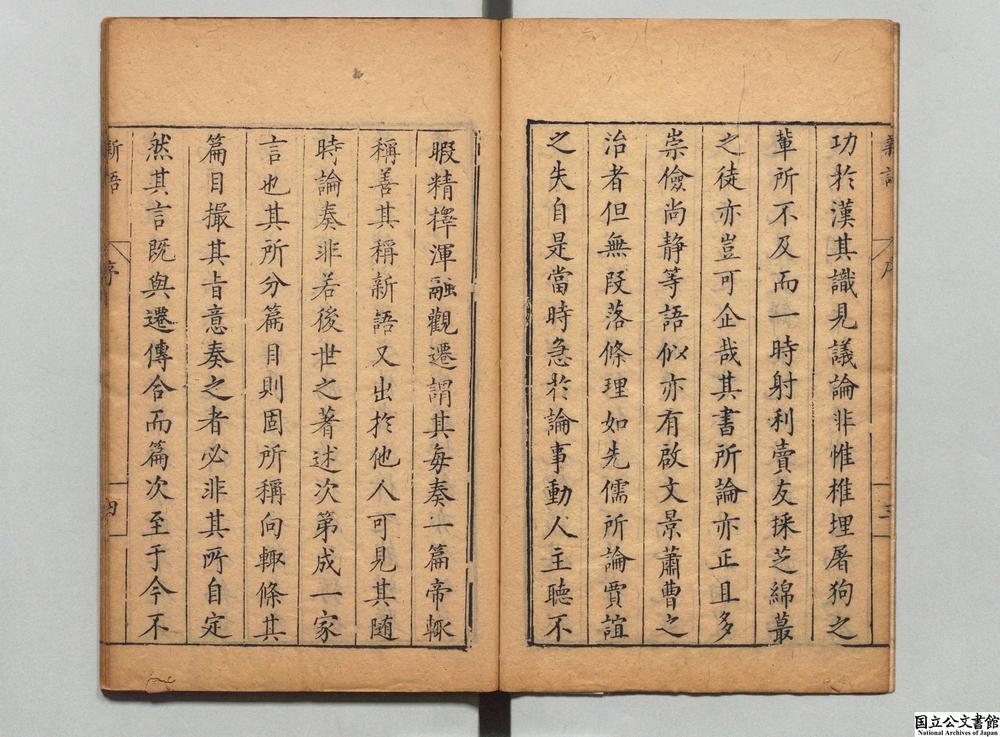 新語
序
三
功於漢其識見議論非惟椎埋屠狗之
輩所不及而一時射利賣友採芝綿蕞
之徒亦豈可企哉其書所論亦正且多
崇儉尚静等語似亦有啟文景蕭曹之
治者但無段落條理如先儒所論賈誼
之失自是當時急於論事動人主聽不
暇精擇渾融觀遷謂其每奏一篇帝輒
稱善其稱新語又出於他人可見其随
時論奏非若後世之著述次第成一家
言也其所分篇目則固所稱向輙條其
篇目撮其旨意奏之者必非其所自定
然其言既與遷傳合而篇次至于今不
新語
序
四
国立公文書館
National Archives of Japan